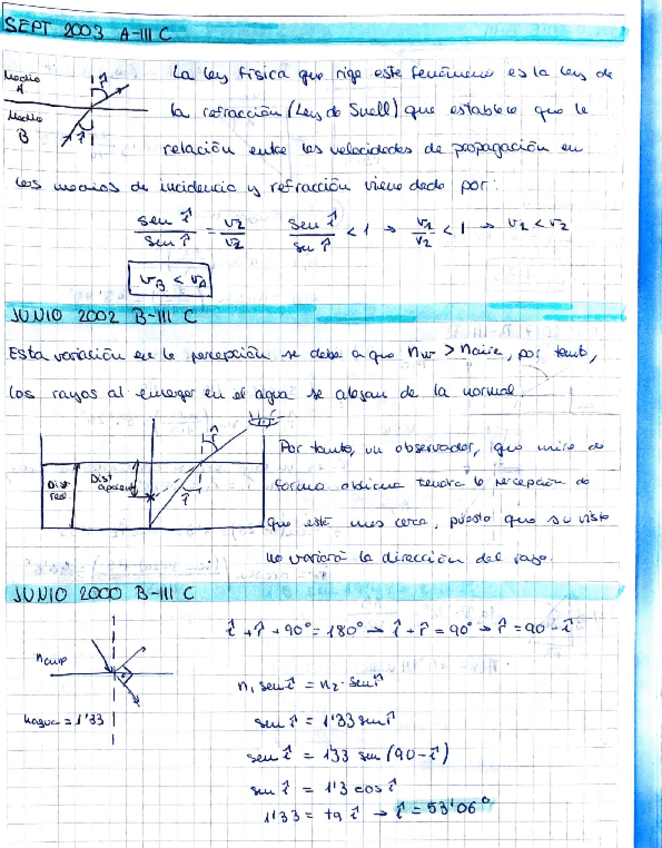 SEPT 2003 A-III C
Medio
A
r̂
Medio
B
î
La ley física que rige este fenómeno es la ley de
la refracción (Ley de Snell) que establece que la
relación entre las velocidades de propagación en
los medios de incidencia y refracción viene dado por:
sen î / sen r̂ = v2 / v2   sen î / sen r̂ < 1 → v1 / v2 < 1 → v1 < v2
vB < vA
JUNIO 2002 B-III C
Esta variación en la percepción se debe a que nw > naire, por tanto,
los rayos al emerger en el agua se alejan de la normal.
r̂
Dist
real
Dist
aparente
î
Por tanto, un observador, que mire de
forma oblicua tendrá la percepción de
que esté mas cerca, puesto que su vista
no variará la dirección del rayo.
JUNIO 2000 B-III C
î + r̂ + 90° = 180° → î + r̂ = 90° → r̂ = 90 - î
nagua = 1'33
n1 sen î = n2 · sen r̂
sen î = 1'33 sen r̂
sen î = 1'33 sen (90 - î)
sen î = 1'3 cos î
1'33 = tg î → î = 53'06°